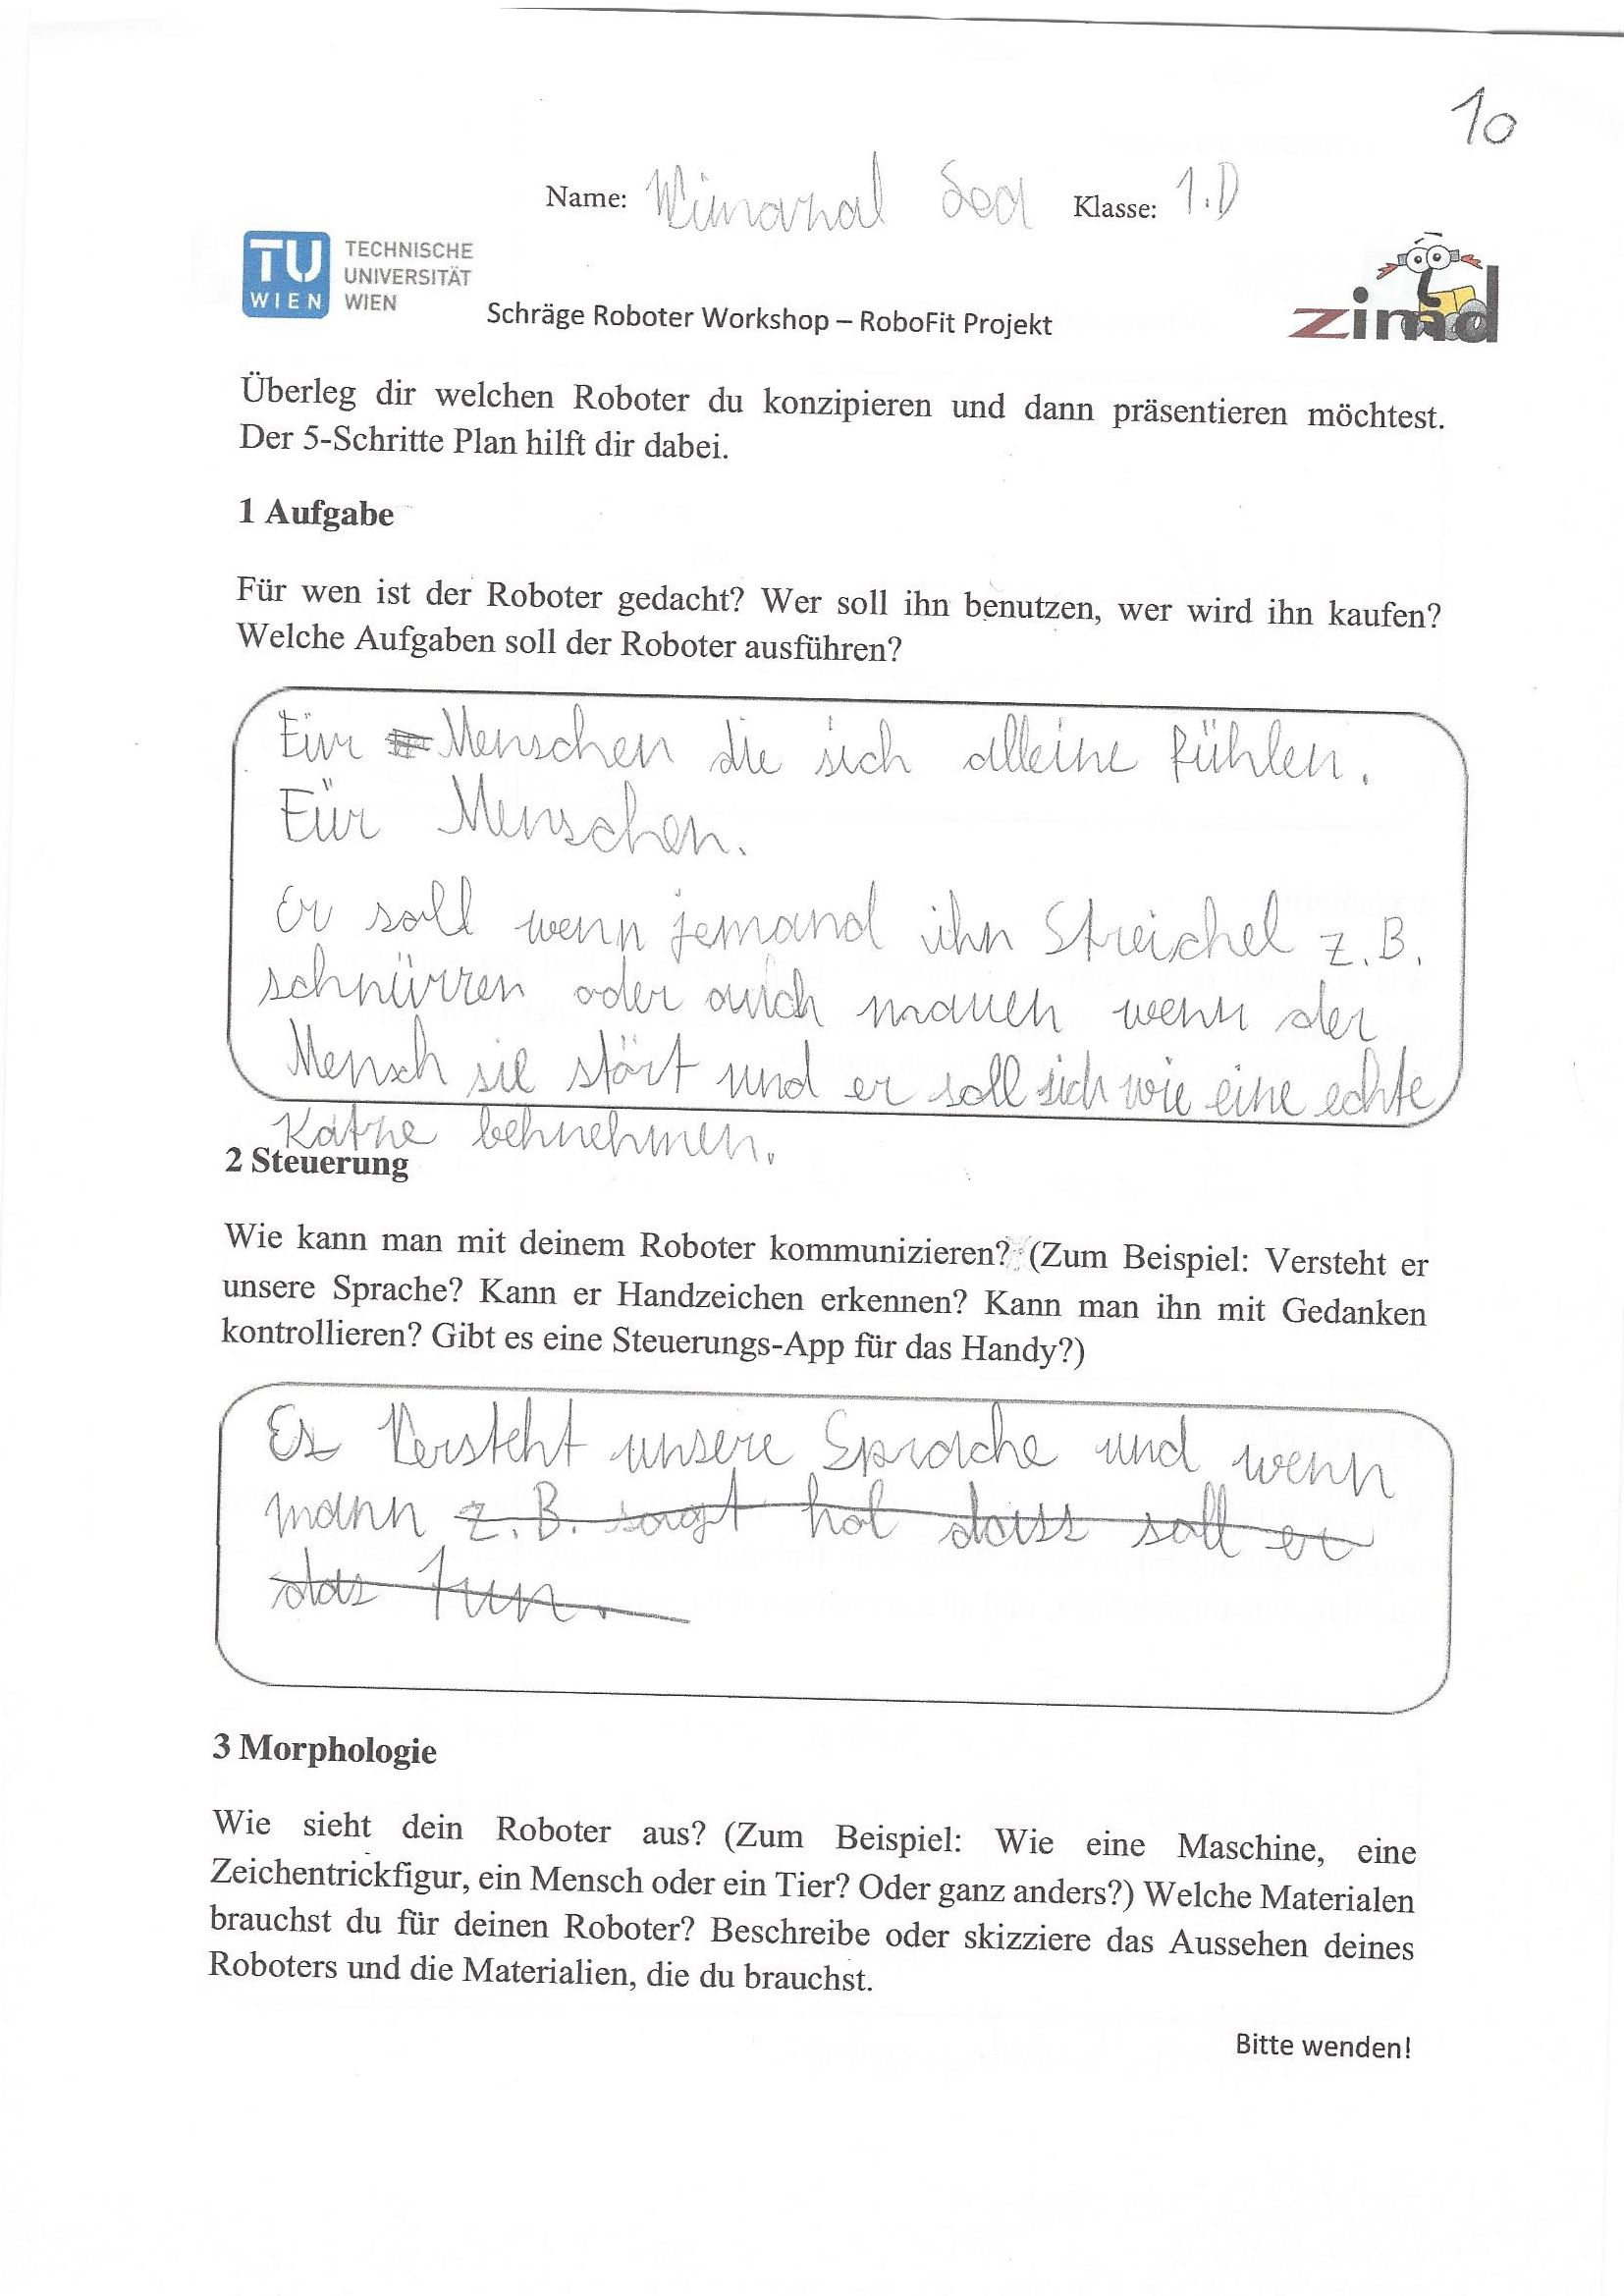 10
Name: Lea Klasse: 1.D
TU WIEN TECHNISCHE
UNIVERSITÄT
WIEN
zimd
Schräge Roboter Workshop – RoboFit Projekt
Überleg dir welchen Roboter du konzipieren und dann präsentieren möchtest.
Der 5-Schritte Plan hilft dir dabei.
1 Aufgabe
Für wen ist der Roboter gedacht? Wer soll ihn benutzen, wer wird ihn kaufen?
Welche Aufgaben soll der Roboter ausführen?
Für Menschen die sich alleine fühlen.
Für Menschen.
Er soll wenn jemand ihn Streichel z.B.
schnürren oder auch mauen wenn der
Mensch sie stört und er soll sich wie eine echte
Katze behnehmen.
2 Steuerung
Wie kann man mit deinem Roboter kommunizieren? (Zum Beispiel: Versteht er
unsere Sprache? Kann er Handzeichen erkennen? Kann man ihn mit Gedanken
kontrollieren? Gibt es eine Steuerungs-App für das Handy?)
Es Versteht unsere Sprache und wenn
mann z.B. sagt hol dass soll er
das tun.
3 Morphologie
Wie sieht dein Roboter aus? (Zum Beispiel: Wie eine Maschine, eine
Zeichentrickfigur, ein Mensch oder ein Tier? Oder ganz anders?) Welche Materialen
brauchst du für deinen Roboter? Beschreibe oder skizziere das Aussehen deines
Roboters und die Materialien, die du brauchst.
Bitte wenden!